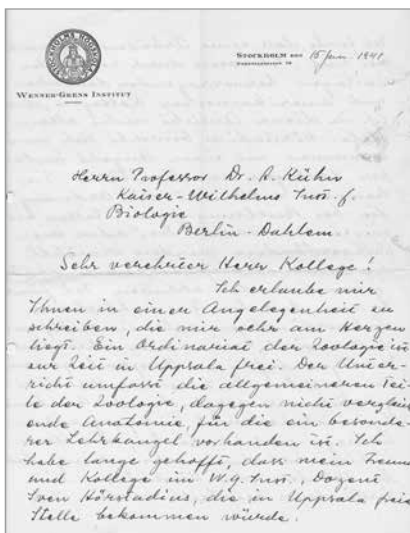 STOCKHOLMS HÖGSKOLA
WENNER-GRENS INSTITUT
STOCKHOLM DEN 15 1941
Herrn Professor Dr. A. Kühn
Kaiser-Wilhelms Inst. f.
Biologie
Berlin-Dahlem
Sehr verehrter Herr Kollege!
Ich erlaube mir
Ihnen in einer Angelegenheit zu
schreiben, die mir sehr am Herzen
liegt. Ein Ordinariat der Zoologie ist
zur Zeit in Uppsala frei. Der Unter-
richt umfasst die allgemeineren Tei-
le der Zoologie, dagegen nicht vergleich
ende Anatomie, für die ein besonde-
rer Lehrkangel vorhanden ist. Ich
habe lange gehofft, dass mein Freund
und Kollege im W.G. Inst., Dozent
Sven Hörstadius, die in Uppsala freie
Stelle bekommen würde.